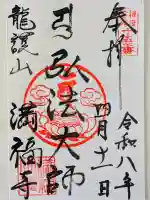 奉拝
令和八年
四月十一日
弘法大師
龍護山
満福寺